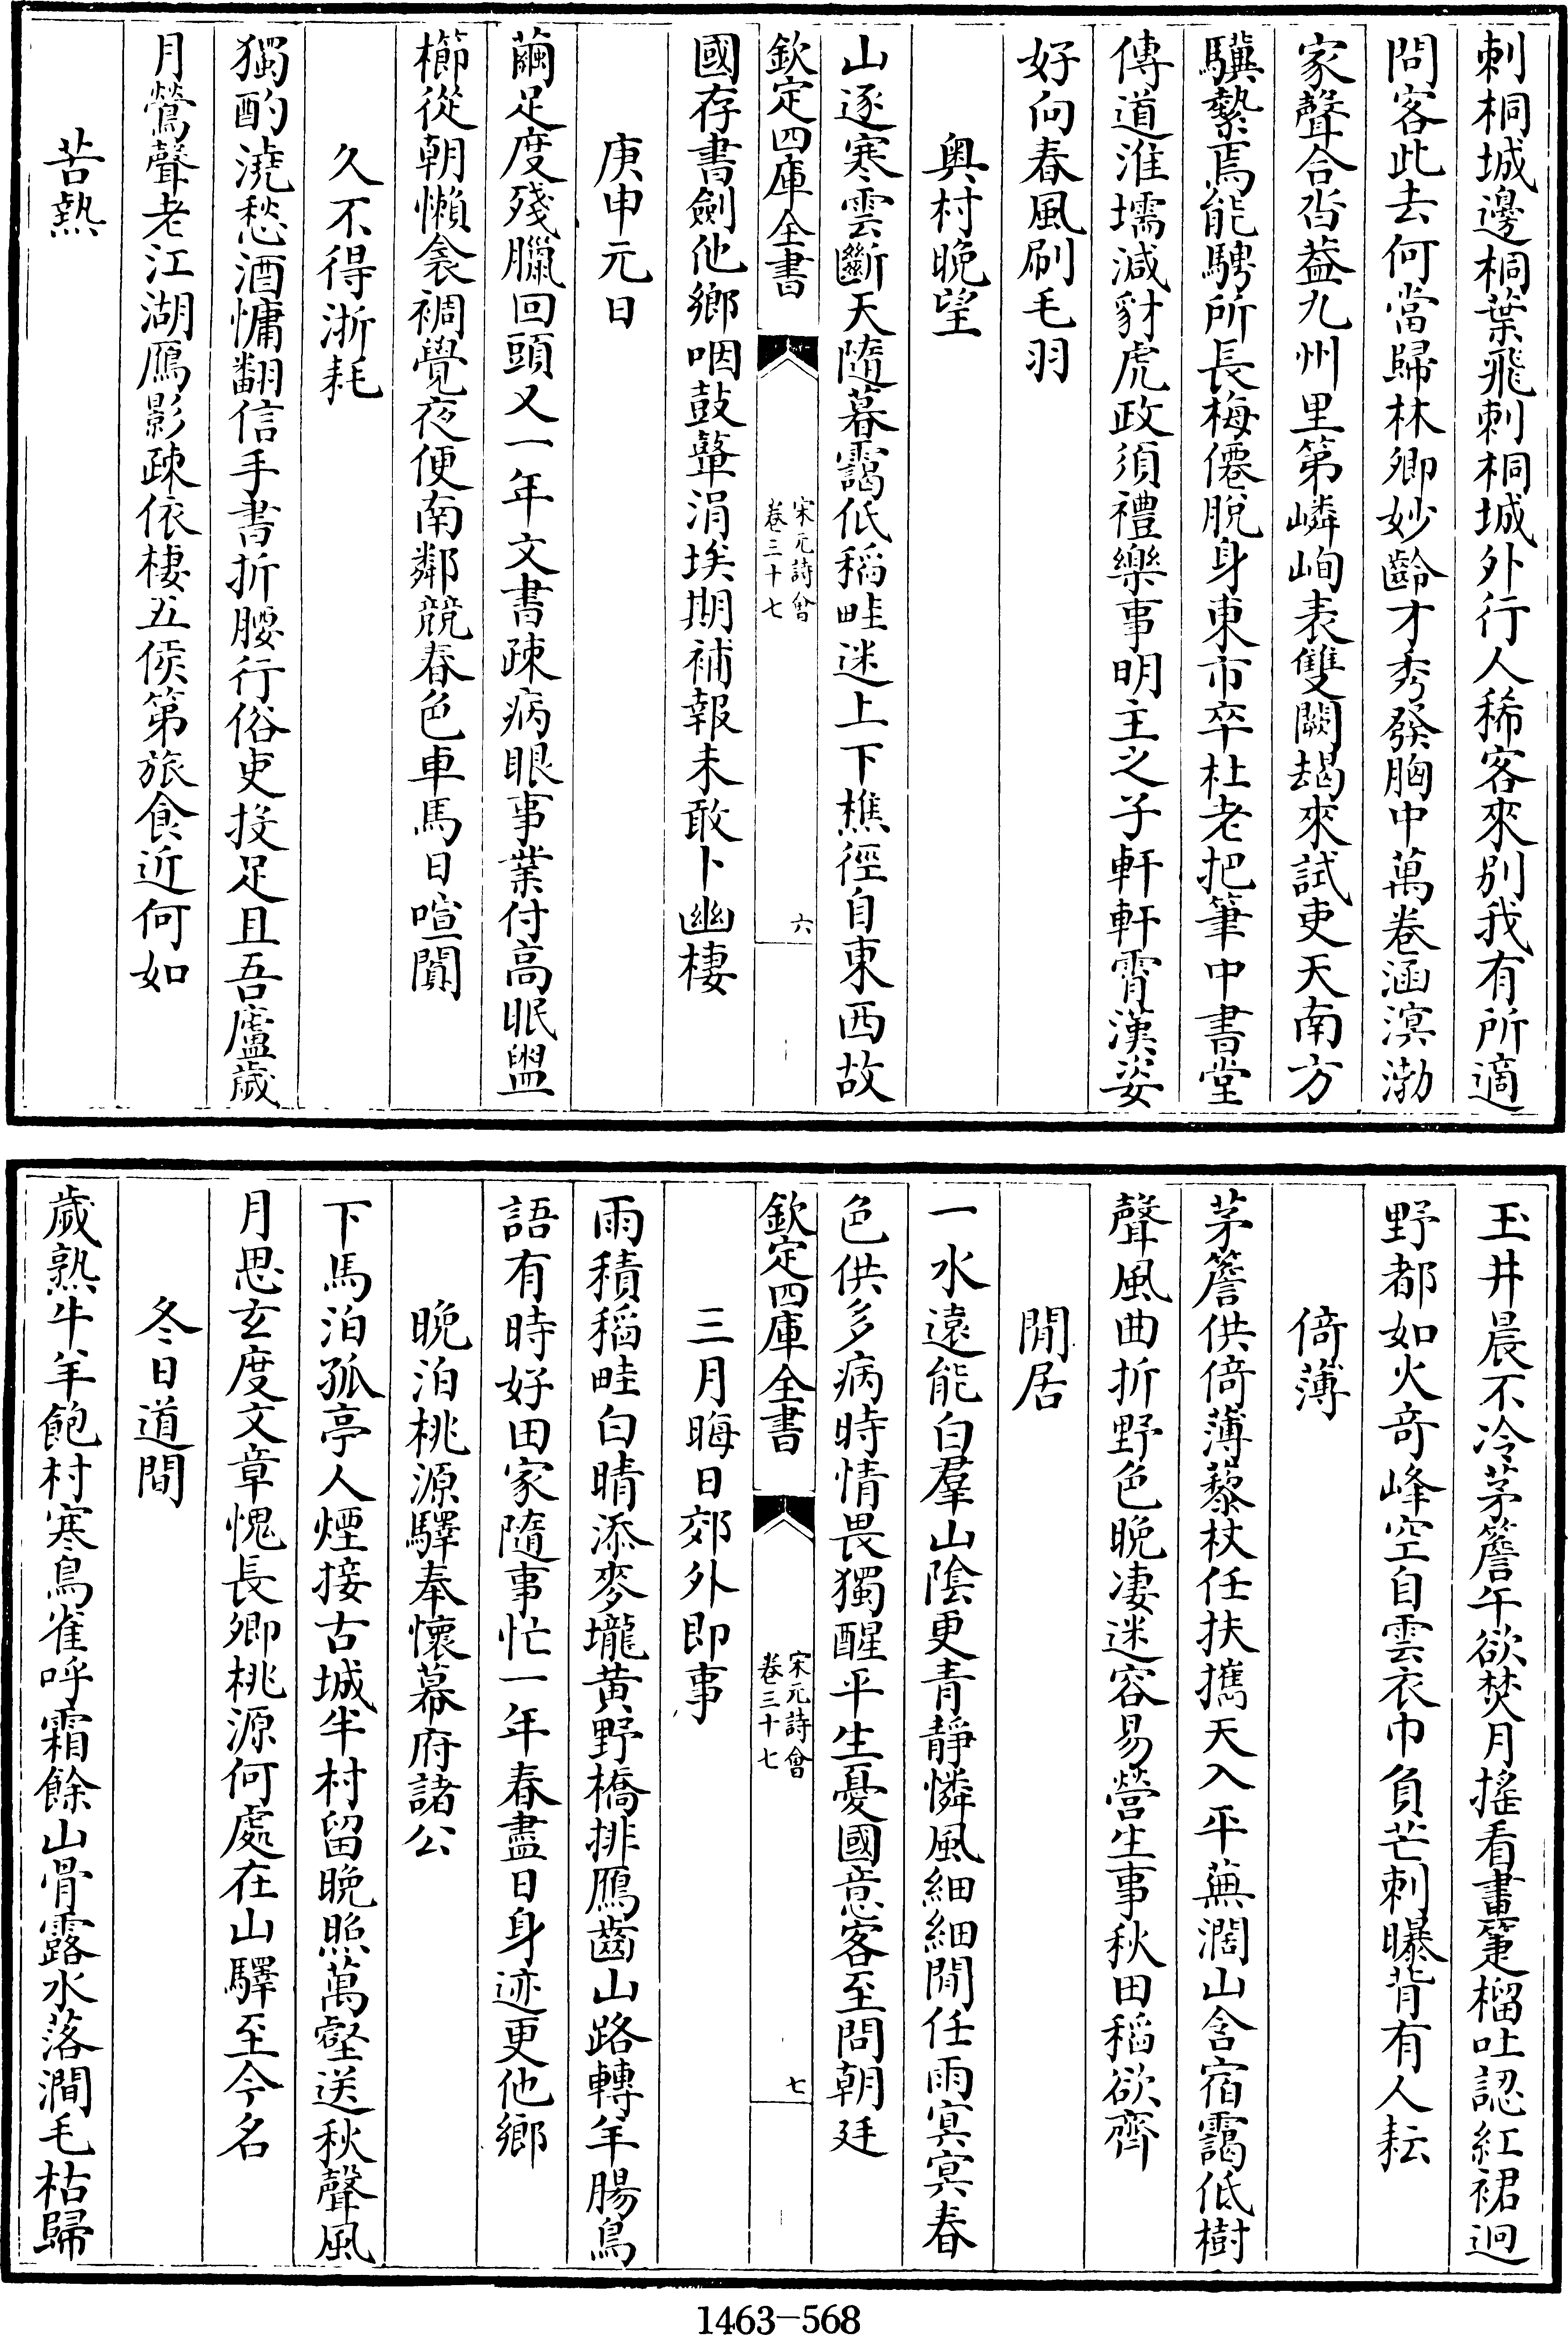 刺桐城邊桐葉飛刺桐城外行人稀客來别我有所適
問客此去何當歸林卿妙齡才秀發胸中萬卷涵溟渤
家聲合沓葢九州里第嶙峋表雙闕朅來試吏天南方
驥縶焉能騁所長梅僊脫身東市卒杜老把筆中書堂
傳道淮壖減豺虎政須禮樂事明主之子軒軒霄漢姿
好向春風刷毛羽
奥村晚望
山逐寒雲斷天隨暮靄低稻畦迷上下樵徑自東西故
欽定四庫全書
宋元詩會
卷三十七
六
國存書劍他鄉咽鼓鼙涓埃期補報未敢卜幽棲
庚申元日
繭足度殘臘回頭又一年文書疎病眼事業付高眠盥
櫛從朝懶衾裯覺夜便南鄰競春色車馬日喧闐
久不得浙耗
獨酌澆愁酒慵翻信手書折腰行俗吏投足且吾廬歲
月鶯聲老江湖鴈影疎依棲五侯第旅食近何如
苦熱
玉井晨不冷茅簷午欲焚月搖看畫箑榴吐認紅裙迥
野都如火奇峰空自雲衣巾負芒刺曝背有人耘
倚薄
茅簷供倚薄藜杖任扶攜天入平蕪濶山含宿靄低樹
聲風曲折野色晚凄迷容易營生事秋田稻欲齊
閒居
一水遠能白羣山陰更青靜憐風細細閒任雨冥冥春
色供多病時情畏獨醒平生憂國意客至問朝廷
欽定四庫全書
宋元詩會
卷三十七
七
三月晦日郊外即事
雨積稻畦白晴添麥壠黄野橋排鴈齒山路轉羊腸鳥
語有時好田家隨事忙一年春盡日身迹更他鄉
晚泊桃源驛奉懷幕府諸公
下馬泊孤亭人煙接古城半村留晚照萬壑送秋聲風
月思玄度文章愧長卿桃源何處在山驛至今名
冬日道間
歲熟牛羊飽村寒鳥雀呼霜餘山骨露水落澗毛枯歸
1463-568